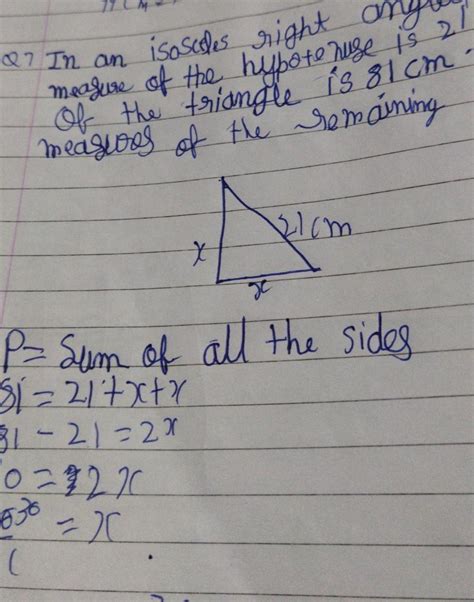 Q7 In an isosceles right angle
measure of the hypotenuse is 21
Of the triangle is 81cm.
measures of the remaining
21cm
x
x
P= Sum of all the sides
81 = 21+x+x
81 - 21 = 2x
0 = 2x
30 = x